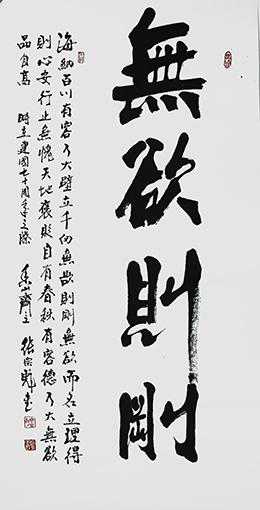 無欲則剛
海納百川有容乃大壁立千仞無欲則剛無欲而名立理得
則心安行止無愧天地褒貶自有春秋有容德乃大無欲
品自高 時在建國七十周年之際
張宗彪書